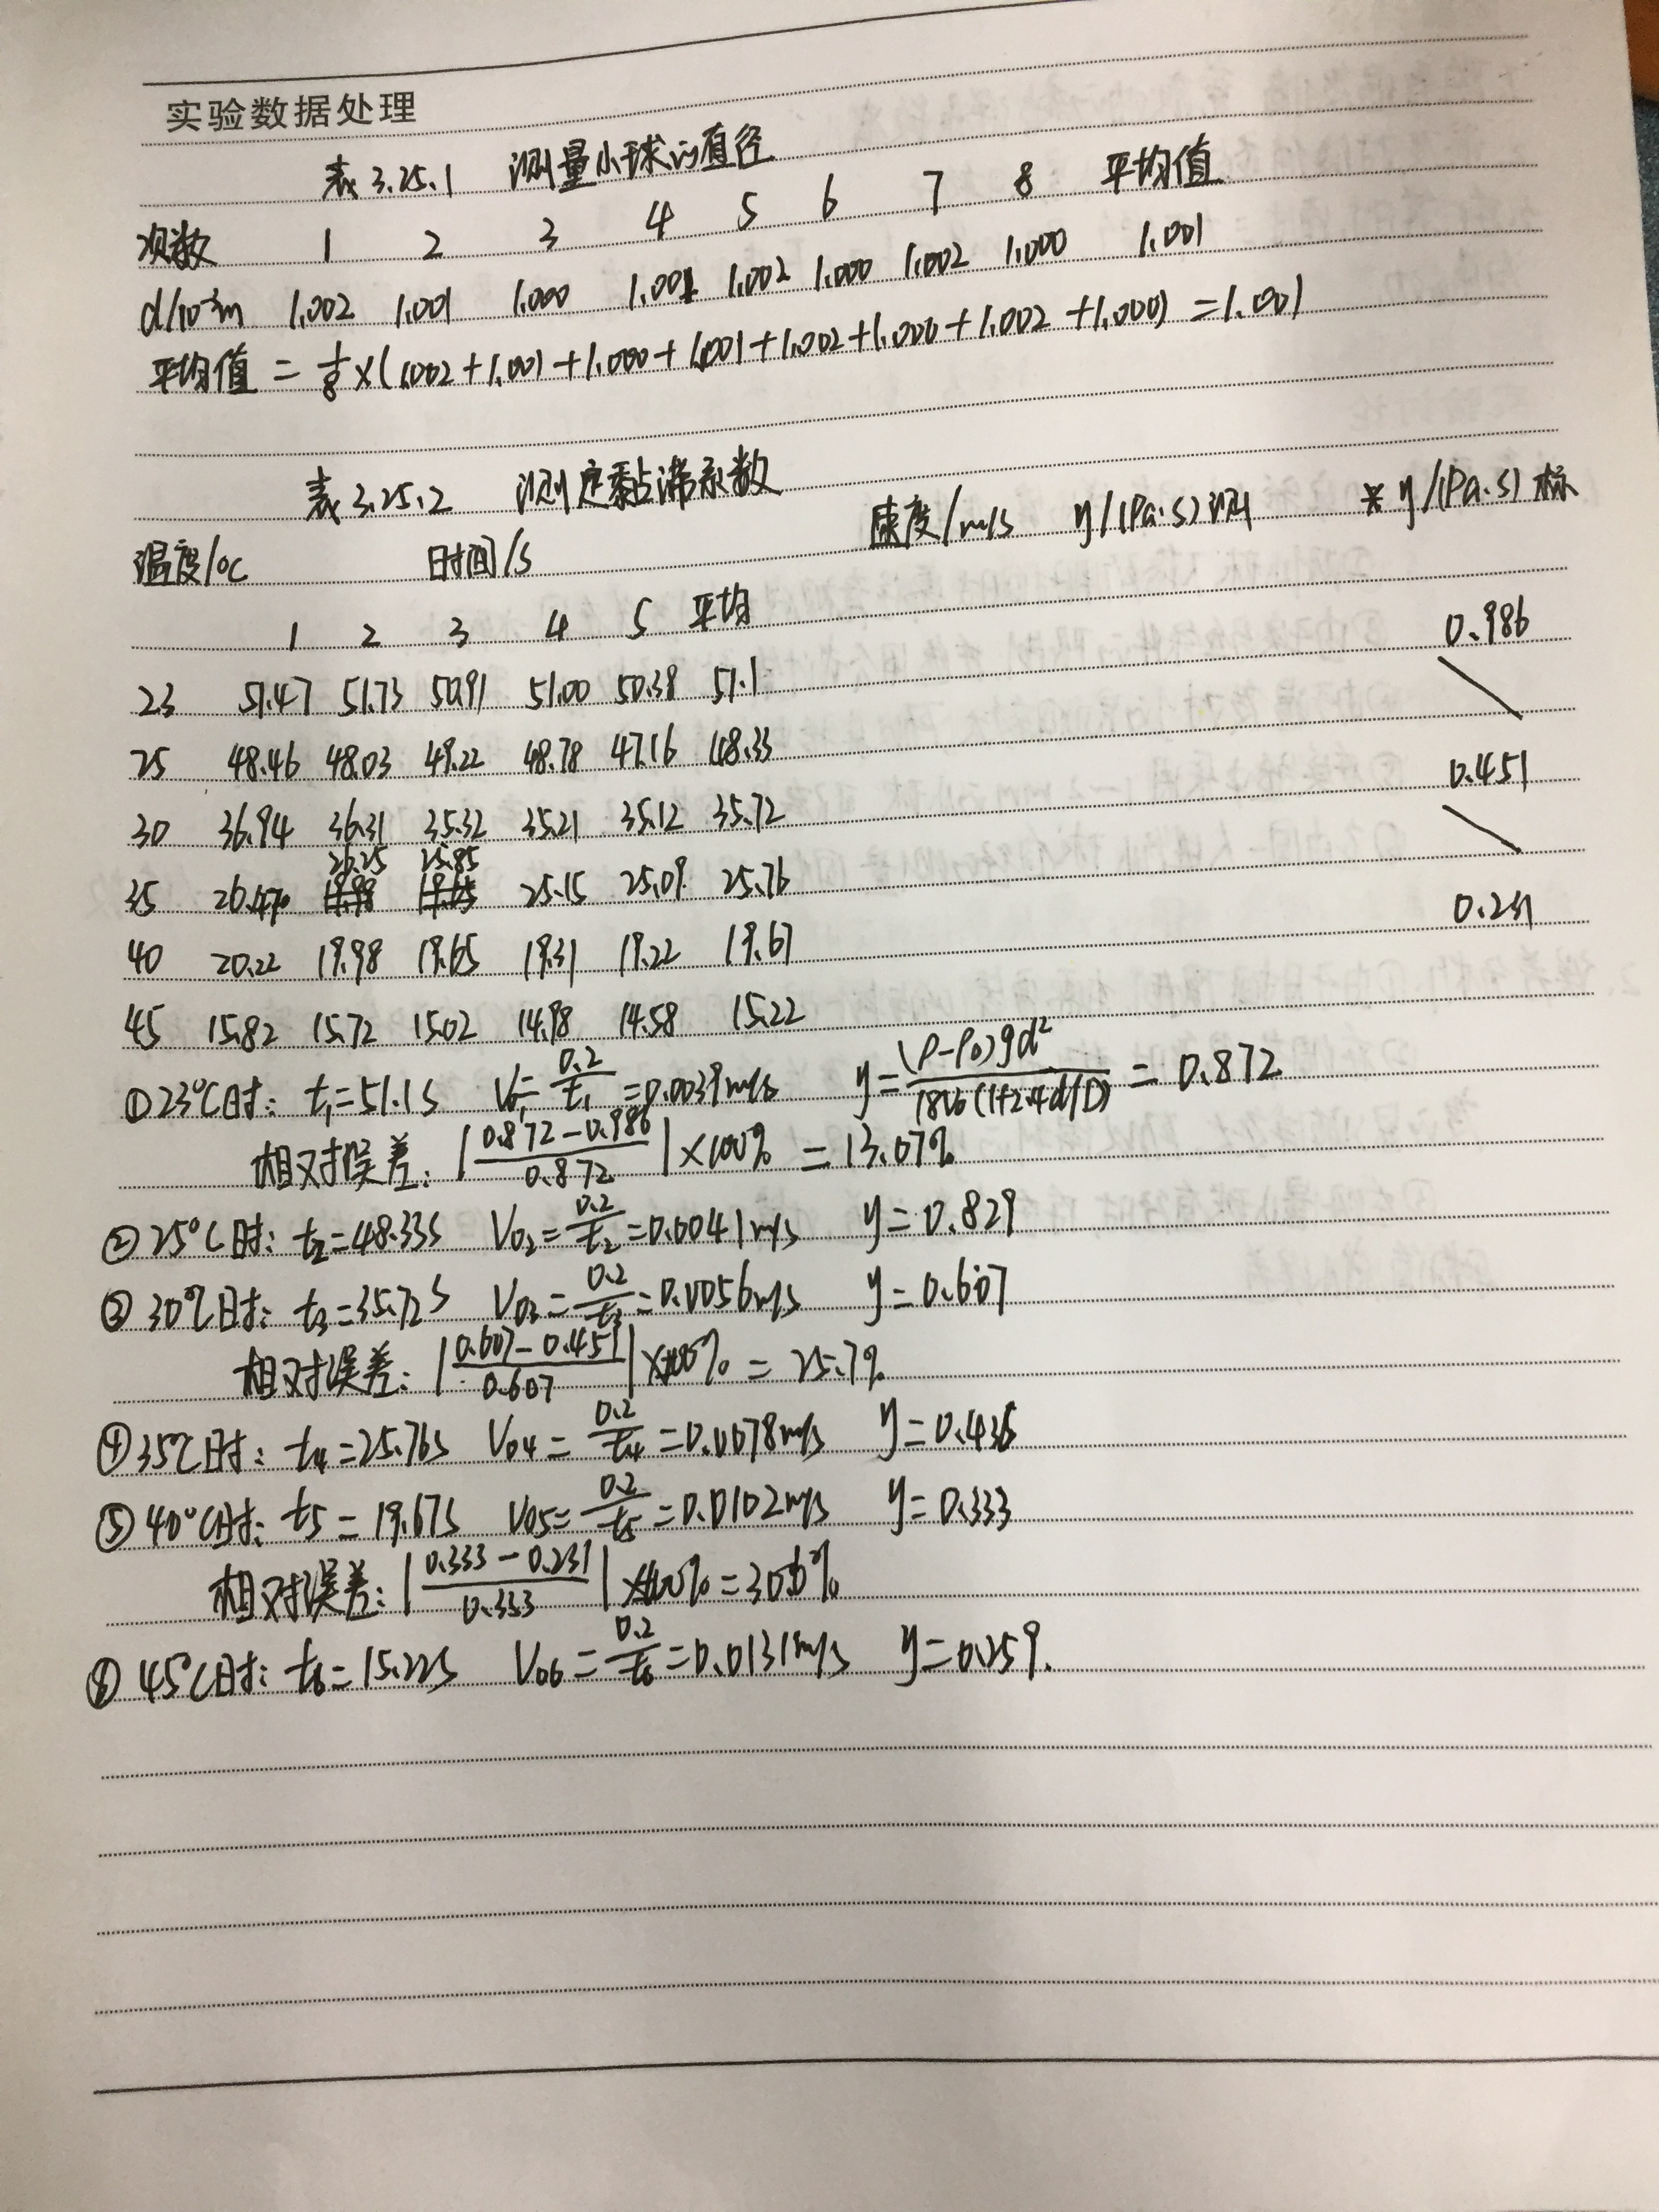 实验数据处理
表 3.25.1 测量小球的直径
次数 1 2 3 4 5 6 7 8 平均值
d/10⁻³m 1.002 1.001 1.000 1.001 1.002 1.000 1.002 1.000 1.001
平均值 = 1/8 × (1.002 + 1.001 + 1.000 + 1.001 + 1.002 + 1.000 + 1.002 + 1.000) = 1.001
表 3.25.2 测定黏滞系数
温度/°C 时间/s 速度/m/s η/(Pa·s)测 * η/(Pa·s)标
1 2 3 4 5 平均
23 51.47 51.73 50.91 51.00 50.38 51.1 0.986
25 48.46 48.03 49.22 48.78 47.16 48.33
30 36.94 36.31 35.32 35.21 35.12 35.72 0.451
26.25 25.85
35 26.47 25.15 25.09 25.76
40 20.22 19.98 19.65 19.31 19.22 19.67 0.231
45 15.82 15.72 15.02 14.98 14.58 15.22
①23°C时: t₁=51.1s V₀₁=0.2/t₁=0.0039m/s η=(ρ-ρ₀)gd²/18V₀(1+2.4d/D) = 0.872
相对误差: |0.872-0.986/0.872|×100% = 13.07%
②25°C时: t₂=48.33s V₀₂=0.2/t₂=0.0041m/s η=0.829
③30℃时: t₃=35.72s V₀₃=0.2/t₃=0.0056m/s η=0.607
相对误差: |0.607-0.451/0.607|×100% = 25.7%
④35℃时: t₄=25.76s V₀₄=0.2/t₄=0.0078m/s η=0.436
⑤40°C时: t₅=19.67s V₀₅=0.2/t₅=0.0102m/s η=0.333
相对误差: |0.333-0.231/0.333|×100%=30.6%
⑥45℃时: t₆=15.22s V₀₆=0.2/t₆=0.0131m/s η=0.259.